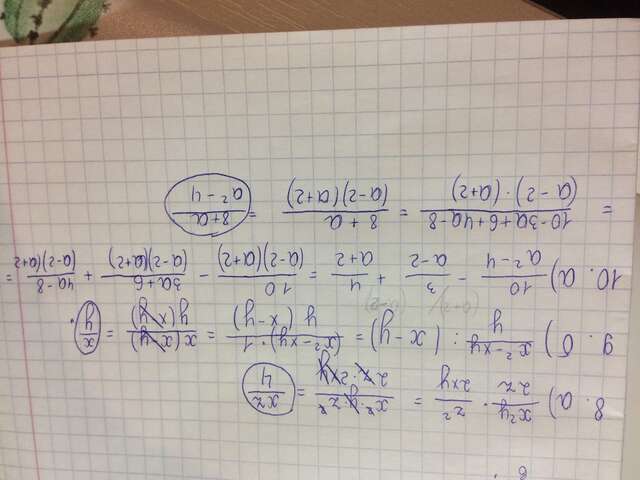 8. a) x²y/2z · z²/2xy = x²·y·z²/2z·2xy = xz/4
9. б) x²-xy/y : (x-y) = (x²-xy)·1/y(x-y) = x(x-y)/y(x-y) = x/y.
10. a) 10/a²-4 - 3/a-2 + 4/a+2 = 10/(a-2)(a+2) - 3a+6/(a-2)(a+2) + 4a-8/(a-2)(a+2 =
= 10-3a+6+4a-8/(a-2)·(a+2) = 8+a/(a-2)(a+2) = 8+a/a²-4